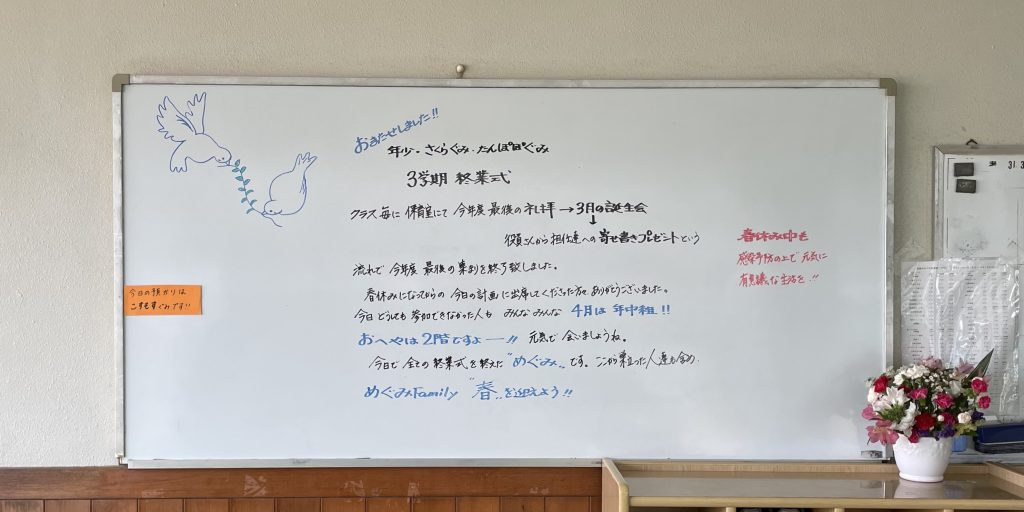 おまたせしました!!
年少。さくらぐみ・たんぽぽぐみ
3学期 終業式
クラス毎に 保育室にて 今年度 最後の 礼拝 → 3月の誕生会
↓
役員さんから担任達への寄せ書きプレゼントという
流れで 今年度 最後の 集まりを終了致しました。
春休みになってからの 今日の計画に出席してくださった方々 ありがとうございました。
今日 どうしても 参加できなかった人も みんなみんな 4月は 年中組!!
おへやは2階ですよ——!! 元気で 会いましょうね。
今日で 全ての 終業式を 終えた "めぐみ" です。ここから巣立った人達も含め
めぐみFamily "春" を迎えよう!!
春休み中も
感染予防の上で 元気に
有意義な生活を!!
今日の預かりは
こすもすぐみです!!
31.3